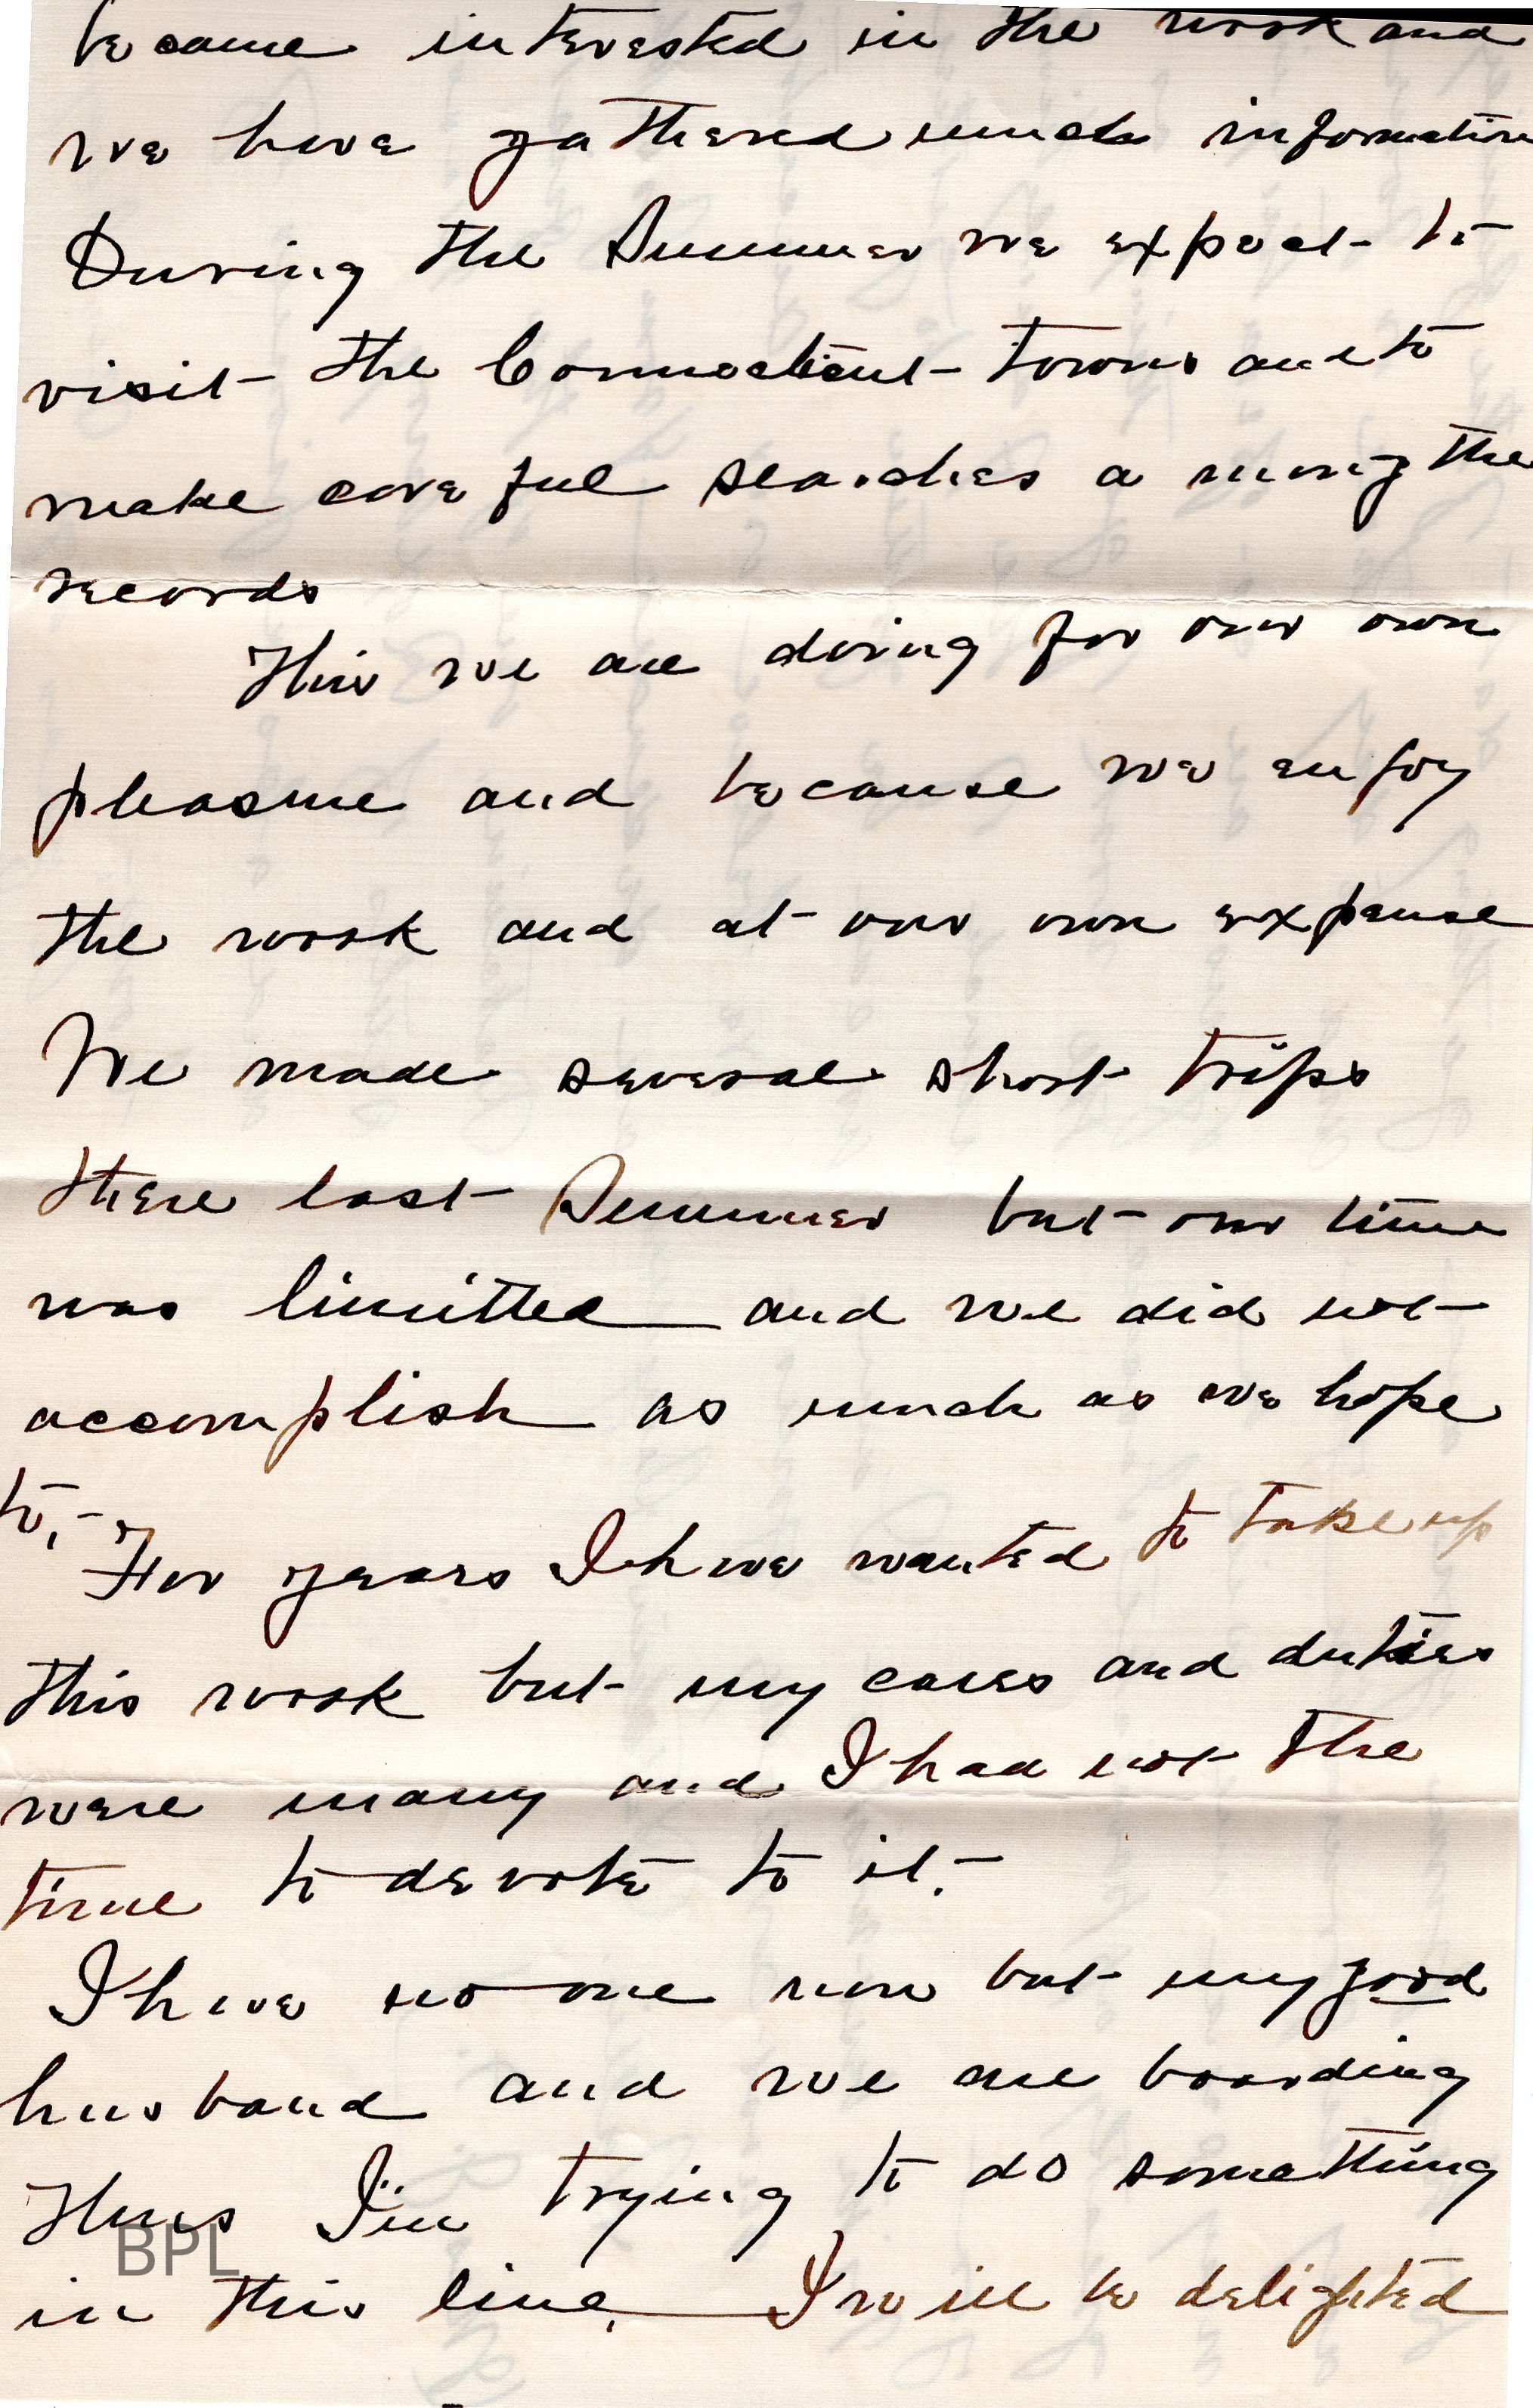 became interested in the work and
we have gathered much information
During the Summer we expect to
visit the Connecticut towns and to
make careful searches among the
records
This we are doing for our own
pleasure and because we enjoy
the work and at our own expense
We made several short trips
there last Summer but our time
was limitted and we did not
accomplish as much as we hope
to,-
For years I have wanted to take up
this work but my cares and duties
were many and I had not the
time to devote to it.-
I have no one now but my good
husband and we are boarding
Thus I'm trying to do something
BPL
in this line. I will be delighted